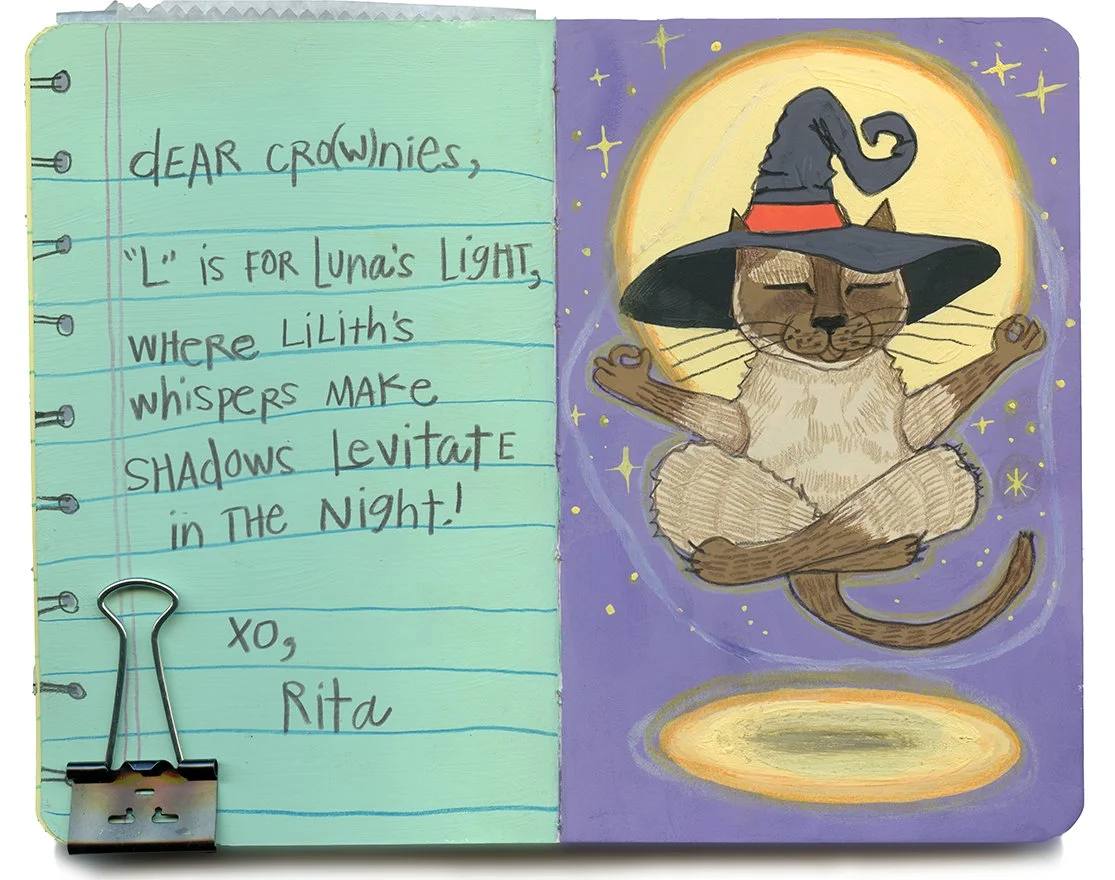 dEAR CRO(W)nies,
"L" is FOR Luna's LiGHT,
WHeRe LiLith's
whispeRs MAKe
SHAdows LevitatE
in THe Night!
XO,
Rita